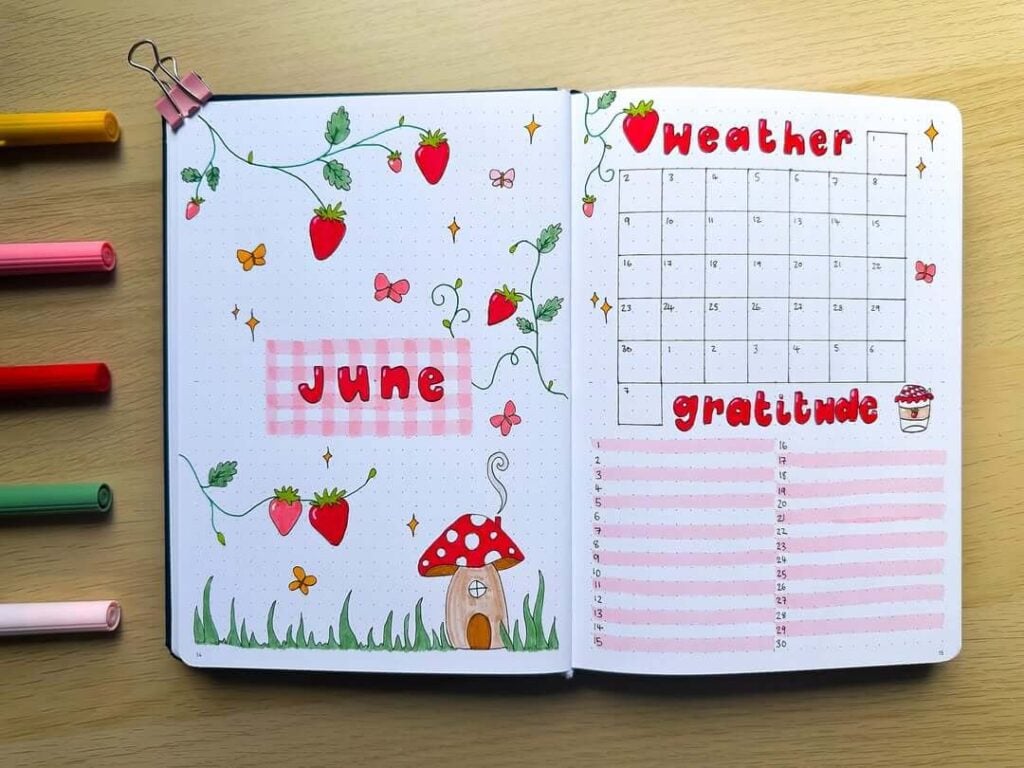 June
14
weather
1
2 3 4 5 6 7 8
9 10 11 12 13 14 15
16 17 18 19 20 21 22
23 24 25 26 27 28 29
30 1 2 3 4 5 6
7
gratitude
1 16
2 17
3 18
4 19
5 20
6 21
7 22
8 23
9 24
10 25
11 26
12 27
13 28
14 29
15 30
15